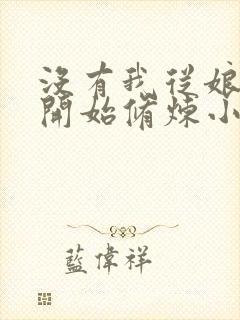 沒有我從娘
開始脩煉小
藍偉祥